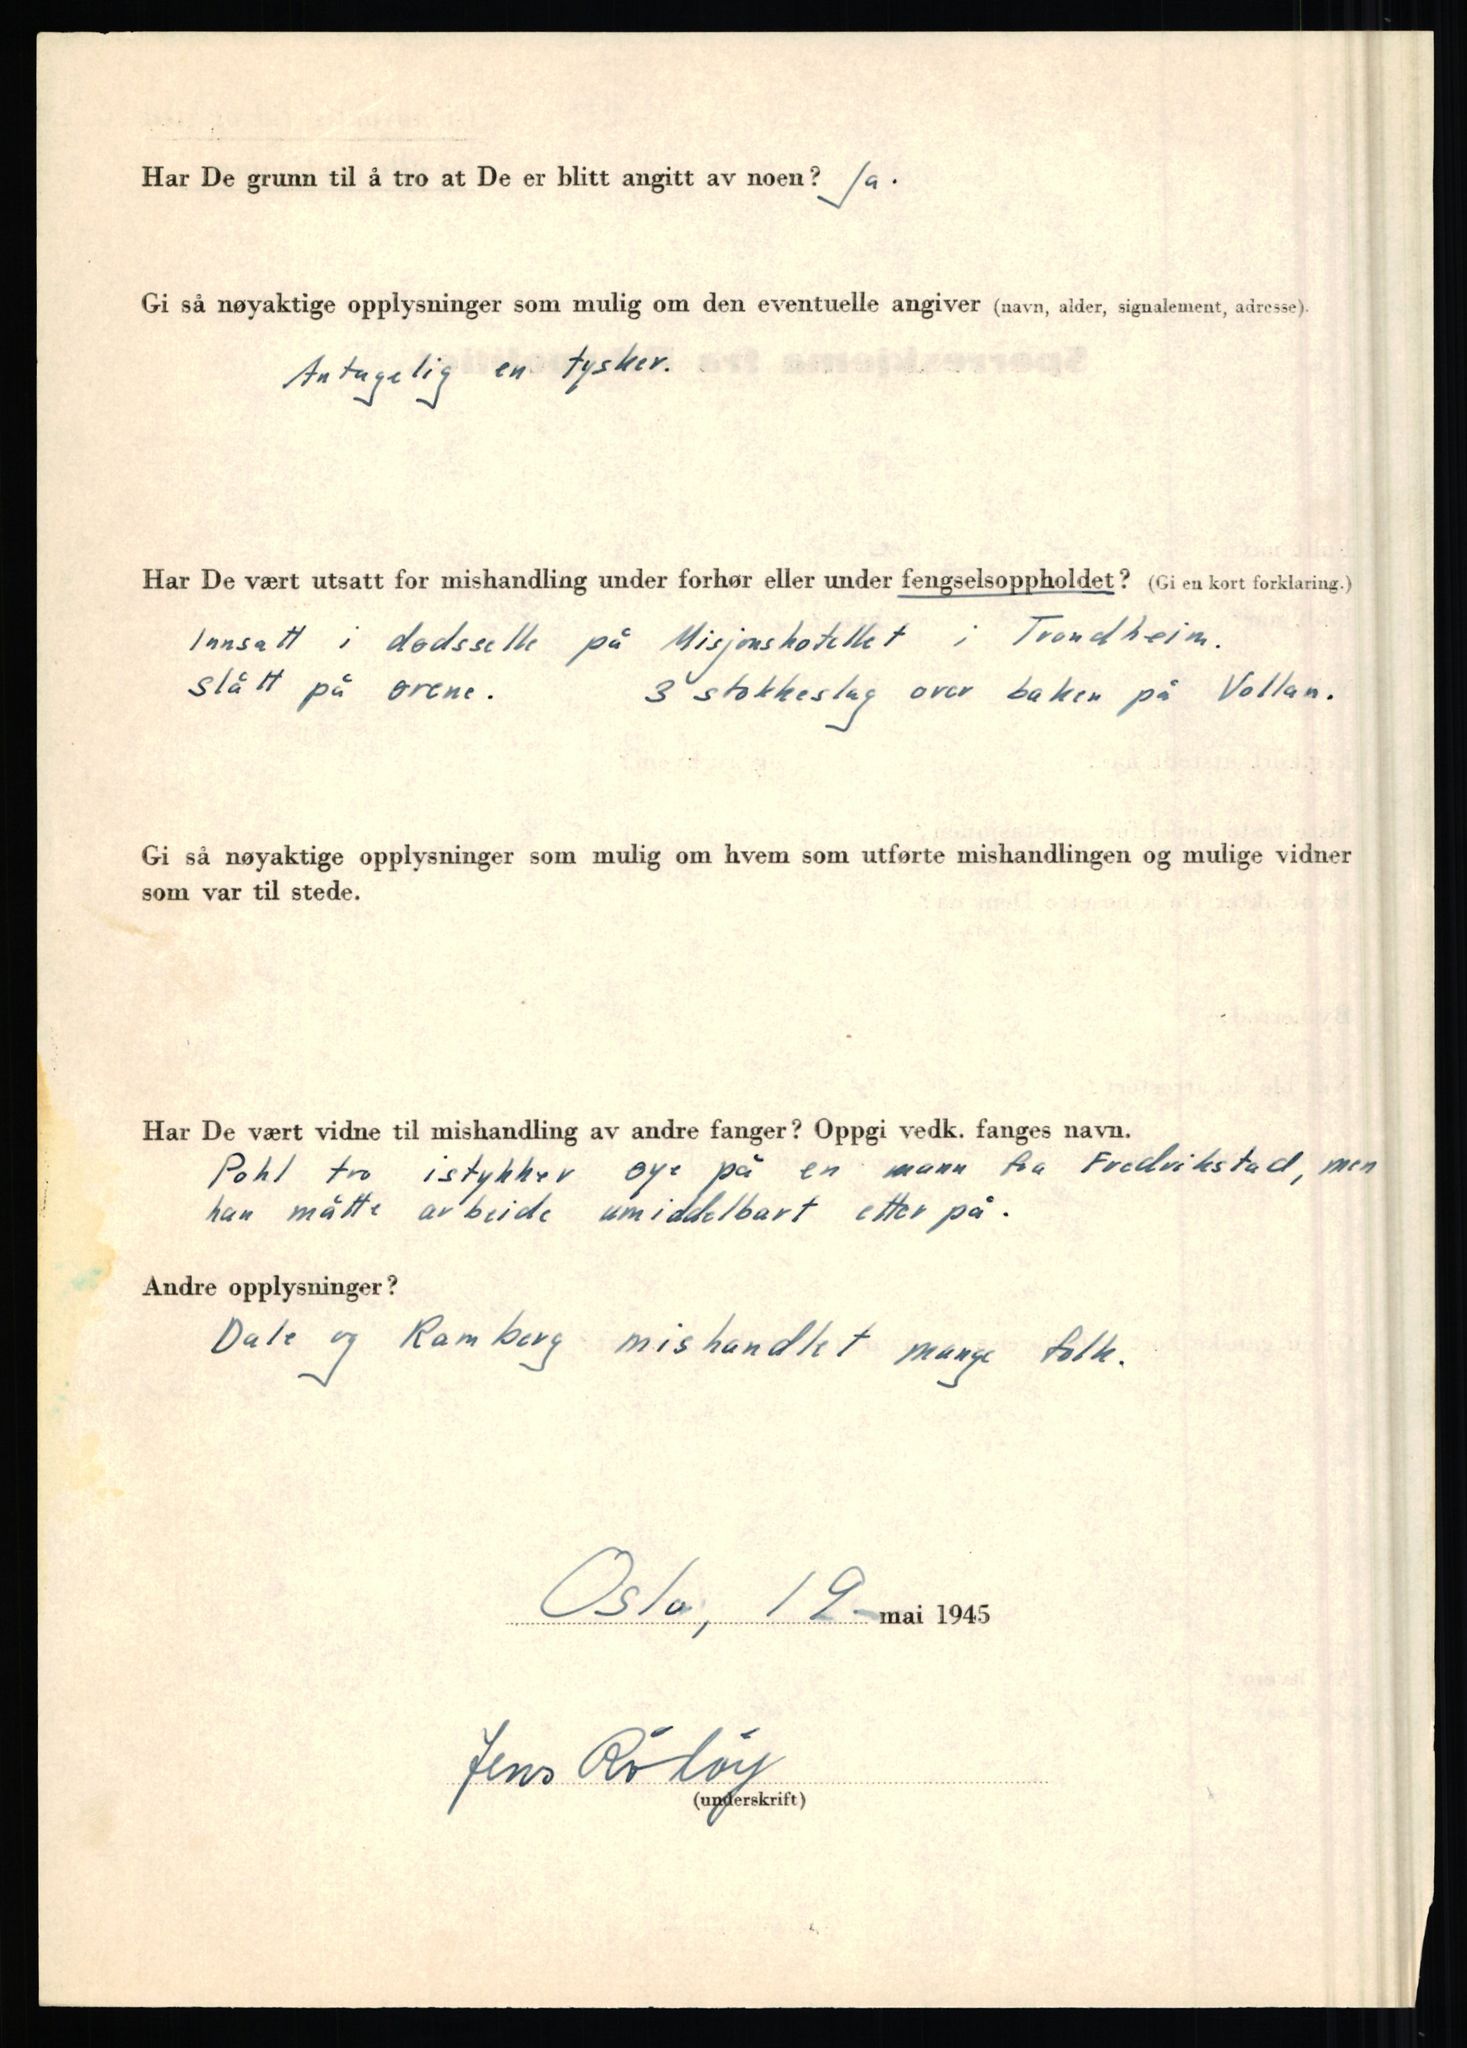 Har De grunn til å tro at De er blitt angitt av noen? Ja.
Gi så nøyaktige opplysninger som mulig om den eventuelle angiver (navn, alder, signalement, adresse).
Antagelig en tysker.
Har De vært utsatt for mishandling under forhør eller under fengselsoppholdet? (Gi en kort forklaring.)
Innsatt i dødsselle på Misjonshotellet i Trondheim.
Slått på ørene. 3 stokkeslag over baken på Vollan.
Gi så nøyaktige opplysninger som mulig om hvem som utførte mishandlingen og mulige vidner
som var til stede.
Har De vært vidne til mishandling av andre fanger? Oppgi vedk. fanges navn.
Pohl tro istykker øye på en mann fra Fredrikstad, men
han måtte arbeide umiddelbart etter på.
Andre opplysninger?
Dale og Ramberg mishandlet mange folk.
Oslo, 19 mai 1945
Jens
(underskrift)